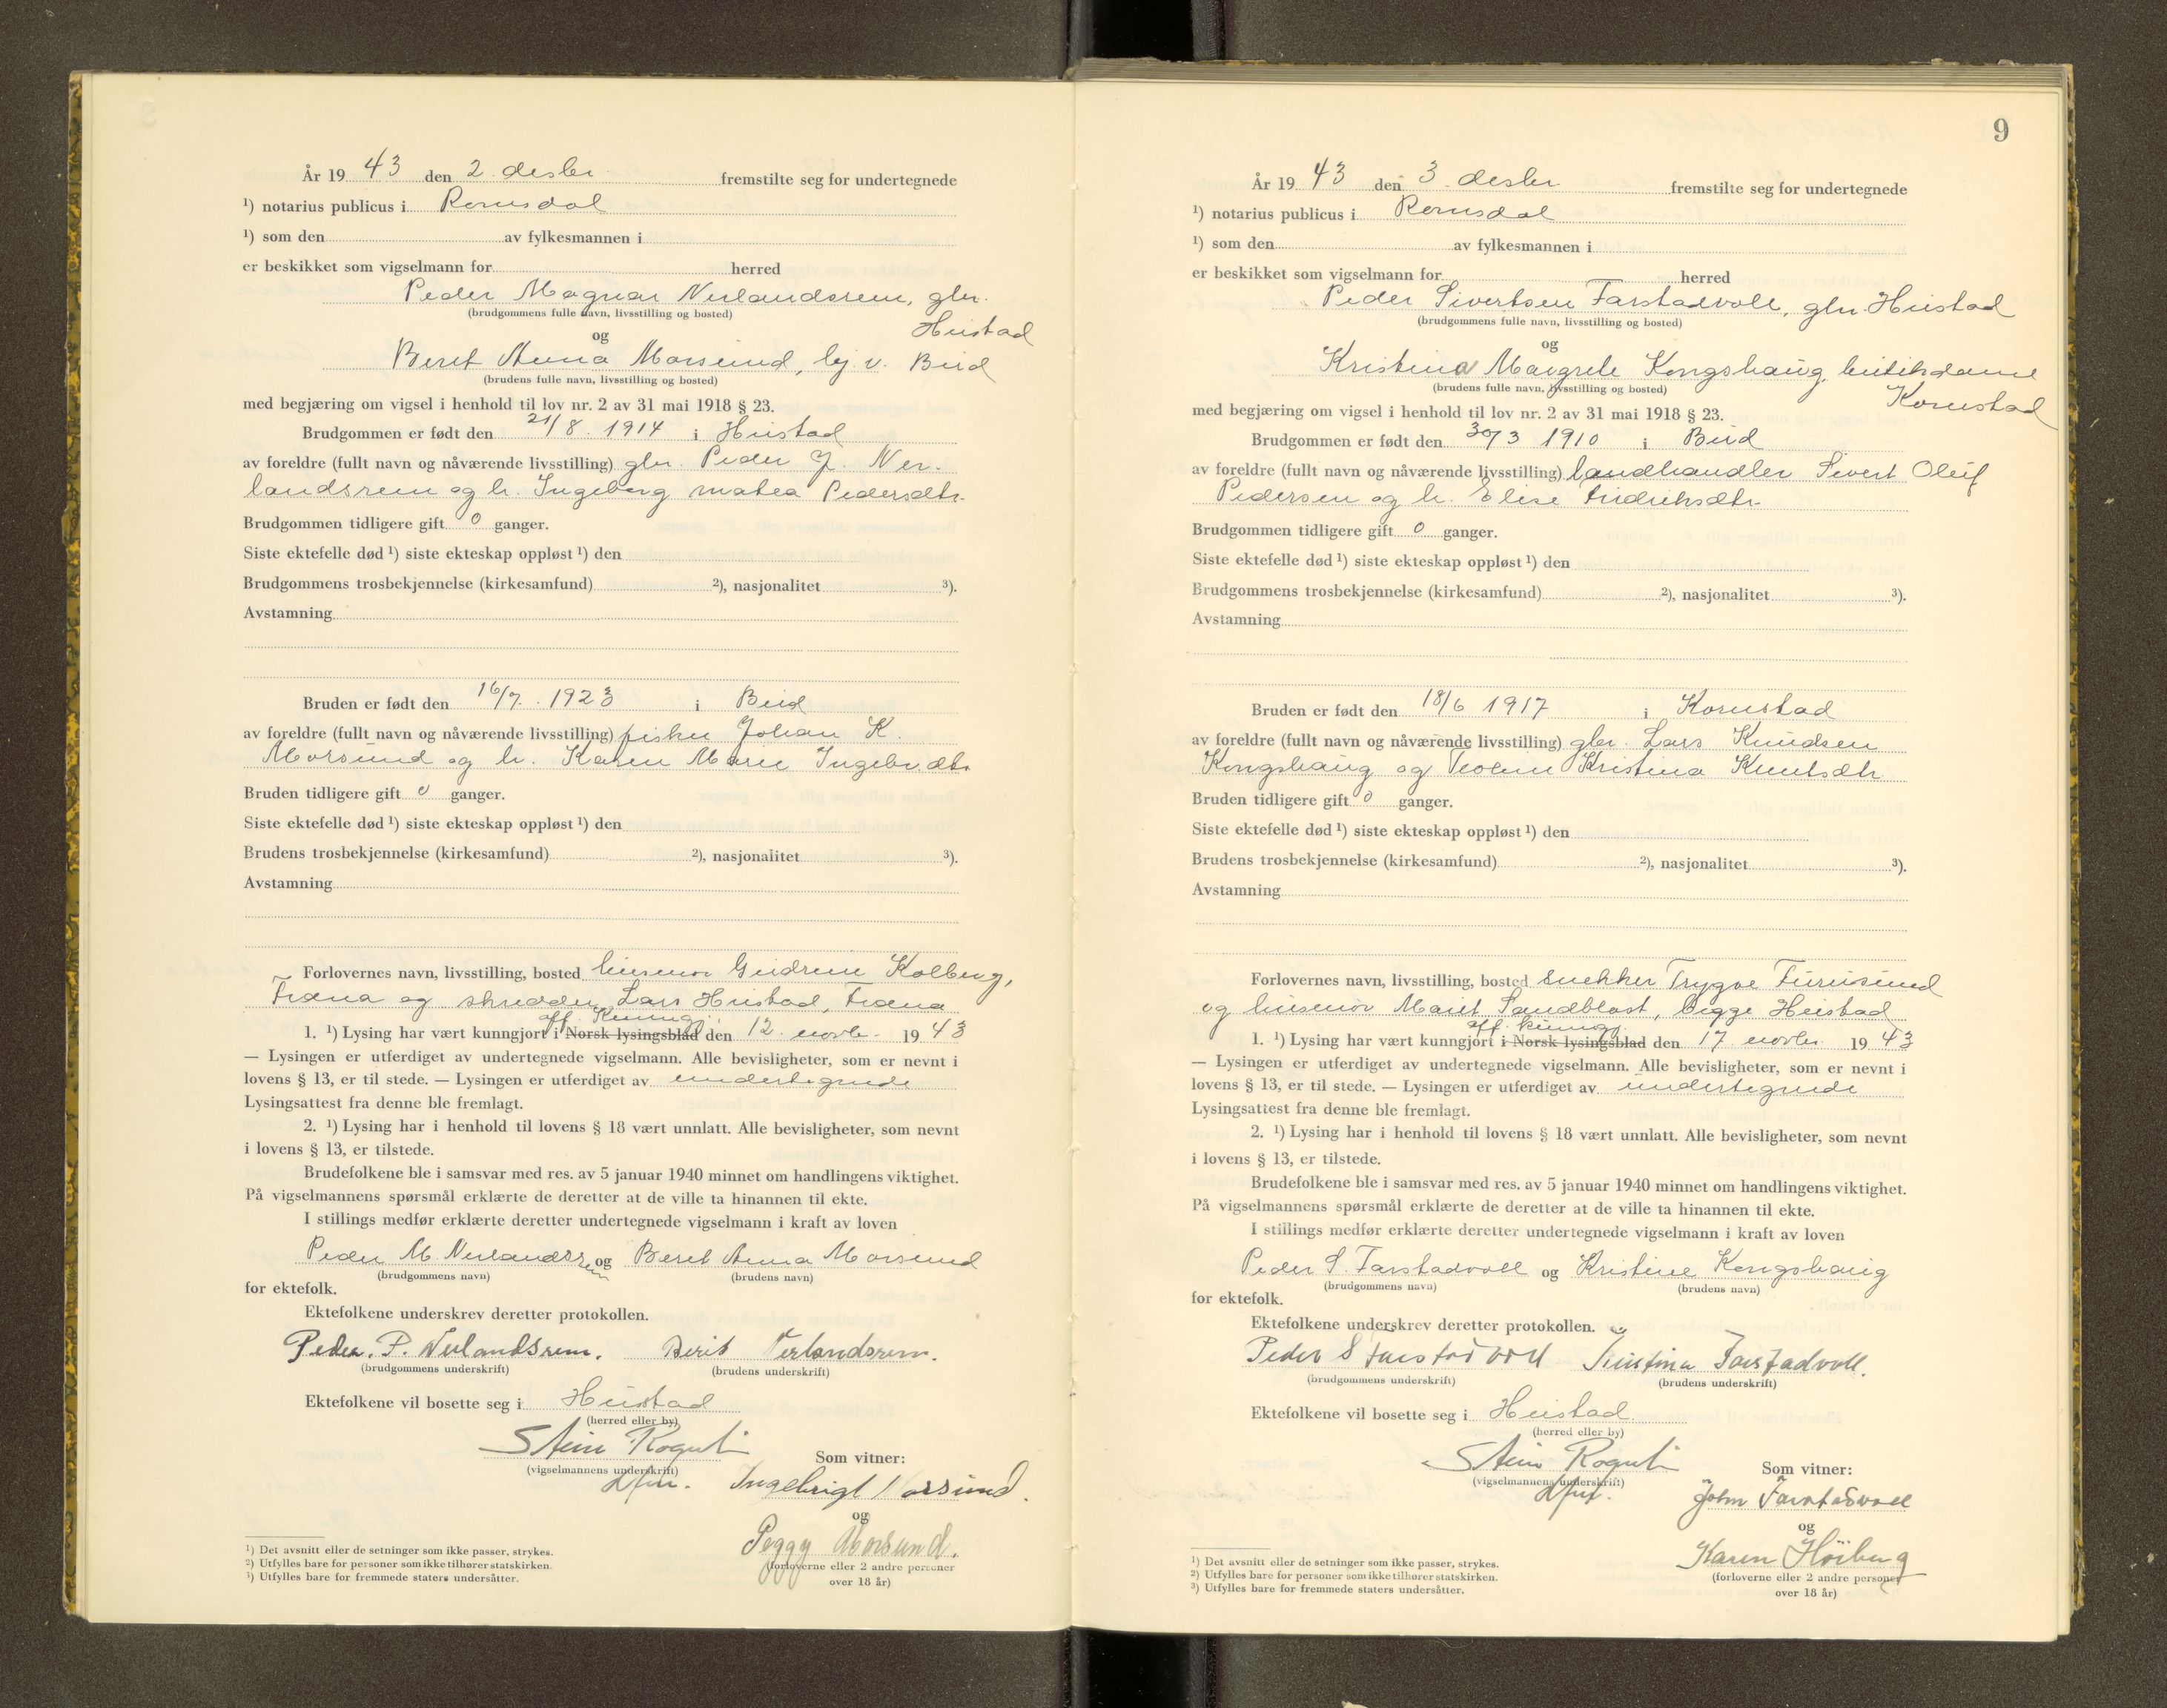 År 19 43 den 2. desbr fremstilte seg for undertegnede
¹) notarius publicus i Romsdal
¹) som den av fylkesmannen i
er beskikket som vigselmann for herred
Peder Magnar Nerlandsrem, gbr.
(brudgommens fulle navn, livsstilling og bosted)
Hustad
og
Beret Anna Morsund, hj. v. Bud
(brudens fulle navn, livsstilling og bosted)
med begjæring om vigsel i henhold til lov nr. 2 av 31 mai 1918 § 23.
Brudgommen er født den 21/8. 1914 i Hustad
av foreldre (fullt navn og nåværende livsstilling) gbr. Peder J. Ner-
landsrem og h. Ingeborg Matea Pedersdtr.
Brudgommen tidligere gift 0 ganger.
Siste ektefelle død ¹) siste ekteskap oppløst ¹) den
Brudgommens trosbekjennelse (kirkesamfund) ²), nasjonalitet ³).
Avstamning
Bruden er født den 16/7. 1923 i Bud
av foreldre (fullt navn og nåværende livsstilling) fisker Johan K.
Morsund og h. Karen Marie Ingebr.dtr
Bruden tidligere gift 0 ganger.
Siste ektefelle død ¹) siste ekteskap oppløst ¹) den
Brudens trosbekjennelse (kirkesamfund) ²), nasjonalitet ³).
Avstamning
Forlovernes navn, livsstilling, bosted husmor Gudrun Kolberg,
Fræna og skredder Lars Hustad, Fræna
off. kunngj.
1. ¹) Lysing har vært kunngjort i Norsk lysingsblad den 12. novbr. 19 43
— Lysingen er utferdiget av undertegnede vigselmann. Alle bevisligheter, som er nevnt i
lovens § 13, er til stede. — Lysingen er utferdiget av undertegnede
Lysingsattest fra denne ble fremlagt.
2. ¹) Lysing har i henhold til lovens § 18 vært unnlatt. Alle bevisligheter, som nevnt
i lovens § 13, er tilstede.
Brudefolkene ble i samsvar med res. av 5 januar 1940 minnet om handlingens viktighet.
På vigselmannens spørsmål erklærte de deretter at de ville ta hinannen til ekte.
I stillings medfør erklærte deretter undertegnede vigselmann i kraft av loven
Peder M. Nerlandsrem og Beret Anna Morsund
(brudgommens navn) (brudens navn)
for ektefolk.
Ektefolkene underskrev deretter protokollen.
Peder. P. Nerlandsrem. Berit Nerlandsrem.
(brudgommens underskrift) (brudens underskrift)
Ektefolkene vil bosette seg i Hustad
(herred eller by)
Stein Rognli
(vigselmannens underskrift)
Som vitner:
Ingebrigt Morsund.
og
Peggy Morsund.
(forloverne eller 2 andre personer
over 18 år)
¹) Det avsnitt eller de setninger som ikke passer, strykes.
²) Utfylles bare for personer som ikke tilhører statskirken.
³) Utfylles bare for fremmede staters undersåtter.
9
År 19 43 den 3. desbr fremstilte seg for undertegnede
¹) notarius publicus i Romsdal
¹) som den av fylkesmannen i
er beskikket som vigselmann for herred
Peder Sivertsen Farstadvoll, gbr. Hustad
(brudgommens fulle navn, livsstilling og bosted)
og
Kristina Margrete Kongshaug, butikdame
(brudens fulle navn, livsstilling og bosted)
Kornstad
med begjæring om vigsel i henhold til lov nr. 2 av 31 mai 1918 § 23.
Brudgommen er født den 30/3 1910 i Bud
av foreldre (fullt navn og nåværende livsstilling) landhandler Sivert Oluf
Pedersen og h. Elise Fridriksdtr.
Brudgommen tidligere gift 0 ganger.
Siste ektefelle død ¹) siste ekteskap oppløst ¹) den
Brudgommens trosbekjennelse (kirkesamfund) ²), nasjonalitet ³).
Avstamning
Bruden er født den 18/6 1917 i Kornstad
av foreldre (fullt navn og nåværende livsstilling) gbr. Lars Knudsen
Kongshaug og Kristina Knutsdtr.
Bruden tidligere gift 0 ganger.
Siste ektefelle død ¹) siste ekteskap oppløst ¹) den
Brudens trosbekjennelse (kirkesamfund) ²), nasjonalitet ³).
Avstamning
Forlovernes navn, livsstilling, bosted snekker Trygve Furusund
og husmor Marit Sandblost, begge Hustad
off. kunngj.
1. ¹) Lysing har vært kunngjort i Norsk lysingsblad den 17. novbr 19 43
— Lysingen er utferdiget av undertegnede vigselmann. Alle bevisligheter, som er nevnt i
lovens § 13, er til stede. — Lysingen er utferdiget av undertegnede
Lysingsattest fra denne ble fremlagt.
2. ¹) Lysing har i henhold til lovens § 18 vært unnlatt. Alle bevisligheter, som nevnt
i lovens § 13, er tilstede.
Brudefolkene ble i samsvar med res. av 5 januar 1940 minnet om handlingens viktighet.
På vigselmannens spørsmål erklærte de deretter at de ville ta hinannen til ekte.
I stillings medfør erklærte deretter undertegnede vigselmann i kraft av loven
Peder S. Farstadvoll og Kristine Kongshaug
(brudgommens navn) (brudens navn)
for ektefolk.
Ektefolkene underskrev deretter protokollen.
Peder S Farstadvoll Kristina Farstadvoll.
(brudgommens underskrift) (brudens underskrift)
Ektefolkene vil bosette seg i Hustad
(herred eller by)
Stein Rognli
(vigselmannens underskrift)
Som vitner:
John Farstadvoll
og
Karen Høiberg
(forloverne eller 2 andre personer
over 18 år)
¹) Det avsnitt eller de setninger som ikke passer, strykes.
²) Utfylles bare for personer som ikke tilhører statskirken.
³) Utfylles bare for fremmede staters undersåtter.